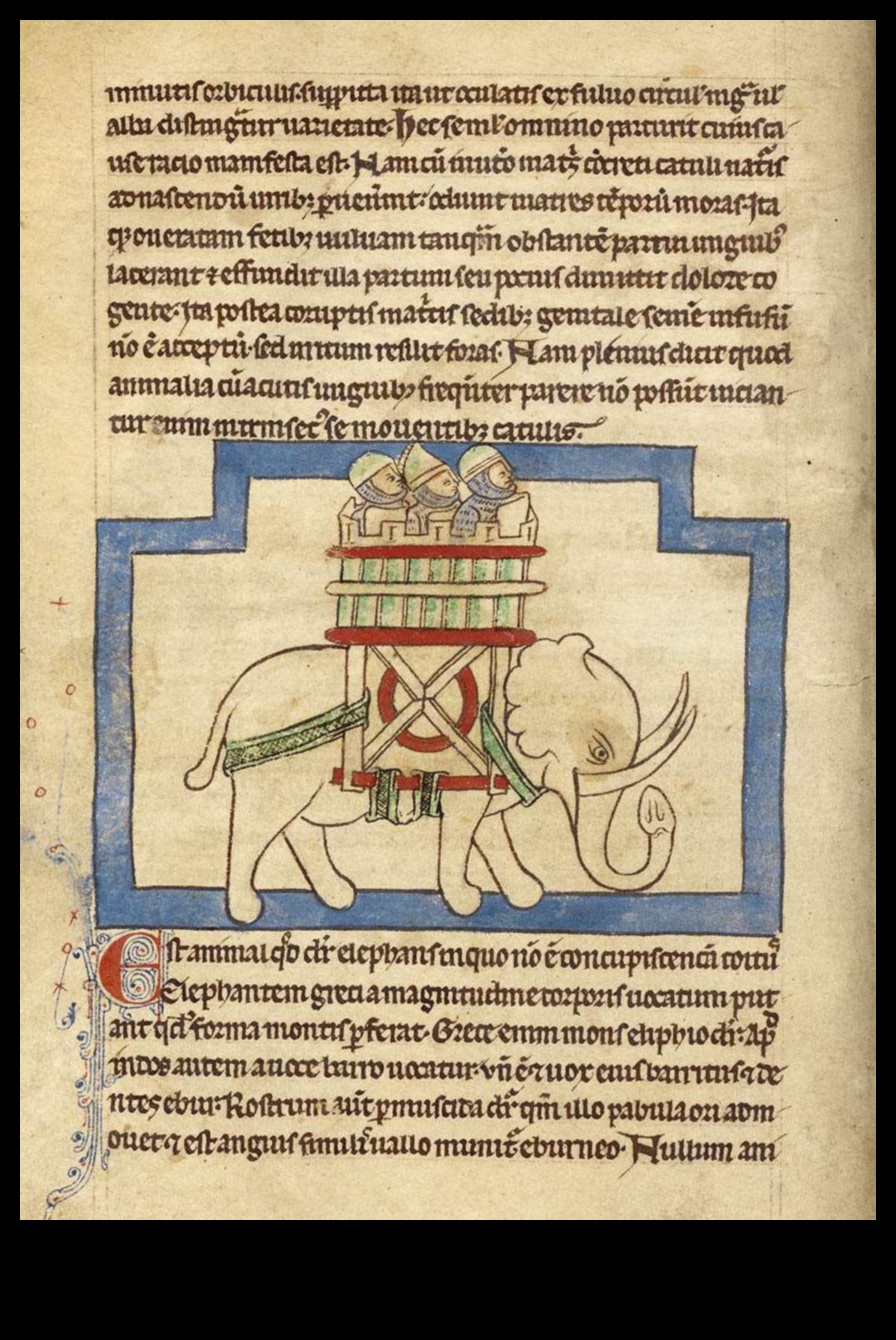 minutis orbiculis. suppicta ita ut oculatis ex fuluo circul' nig̃ ul'
alba disting̃tur uarietate. Hec seml' omnino parturit cuius ca
use racio manifesta est. Nam cũ in ut̃o mat̃ c̃creti catuli nat̃is
ad nascendũ uirib; ꝑueniũnt. odiunt matres tẽporũ moras. Ita
qꝫ oneratam fetib; uuluam tanqm̃ obstantẽ partui unguib'
lacerant ⁊ effundit illa partum seu pocius dimittit dolore co
gente. Ita postea coruptis mat̃cis sedib; genitale semẽ infusũ
nõ ẽ acceptũ. sed irritum resilit foras. Nam plenius dicit quod
animalia cũ acutis unguib; freqũnter parere nõ possũt uician
tur enim intrinsec' se mouentib; catulis.
Est animal qd̃ dr̃ elephans in quo nõ ẽ concupiscencia coitũ
Elephantem greci a magnitudine corporis uocatum put
ant qd̃ forma montis ꝑferat. Grece enim mons eliphio dr̃. Ap̃d
indos autem a uoce barro uocatur. vñ ẽ ⁊ uox eius barritus. ⁊ de
ntes ebur. Rostrum aũt ꝑmuscida dr̃ qm̃ illo pabula ori adm
ouet. ⁊ est anguis similis uallo munit̃ eburneo. Nullum ani